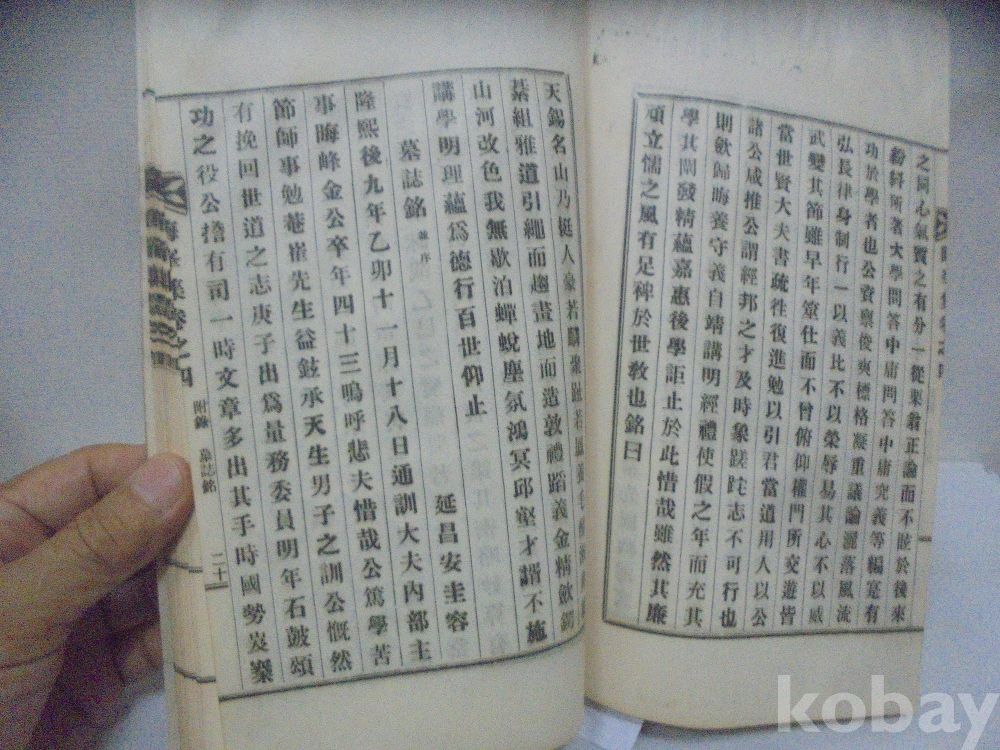 之同心氣質之有分一從栗翁正論而不眩於後來
紛糾所著大學問答中庸問答中庸究義等編寔有
功於學者也公資稟俊爽標格凝重議論灑落風流
弘長律身制行一以義比不以榮辱易其心不以威
武變其節雖早年筮仕而不曾俯仰權門所交遊皆
當世賢大夫書疏徃復進勉以引君當道用人以公
諸公咸推公謂經邦之才及時象蹉跎志不可行也
則歛歸晦養守義自靖講明經禮使假之年而充其
學其闡發精蘊嘉惠後學詎止於此惜哉雖然其廉
頑立懦之風有足裨於世敎也銘曰
天錫名山乃挺人豪若麟
綦組雅道引繩而趨畫地而造敦禮蹈義金精歛鍔
山河改色我無歇泊蟬蛻塵氛鴻冥邱壑才諝不施
講學明理蘊爲德行百世仰止
延昌安圭容
墓誌銘 並序
隆熙後九年乙卯十一月十八日通訓大夫內部主
事晦峰金公卒年四十三嗚呼悲夫惜哉公篤學苦
節師事勉菴崔先生益鉉承天生男子之訓公慨然
有挽回世道之志庚子出爲量務委員明年石皷頌
功之役公擔有司一時文章多出其手時國勢岌嶪
卷之四 附錄 墓誌銘 二十
kobay